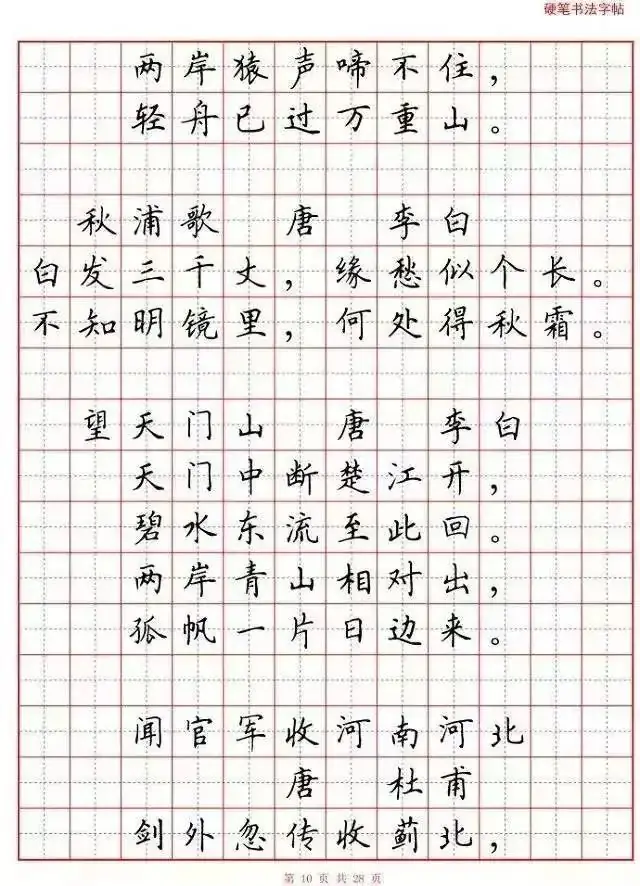 硬笔书法字帖
两岸猿声啼不住，
轻舟已过万重山。
秋浦歌 唐 李白
白发三千丈，缘愁似个长。
不知明镜里，何处得秋霜。
望天门山 唐 李白
天门中断楚江开，
碧水东流至此回。
两岸青山相对出，
孤帆一片日边来。
闻官军收河南河北
唐 杜甫
剑外忽传收蓟北，
第 10 页 共 28 页